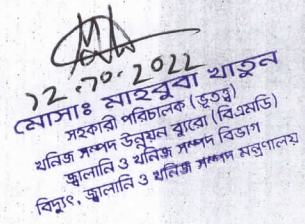 12.10.2022
মোসাঃ মাহবুবা খাতুন
সহকারী পরিচালক (ভূতত্ত্ব)
খনিজ সম্পদ উন্নয়ন ব্যুরো (বিএমডি)
জ্বালানি ও খনিজ সম্পদ বিভাগ
বিদ্যুৎ, জ্বালানি ও খনিজ সম্পদ মন্ত্রণালয়